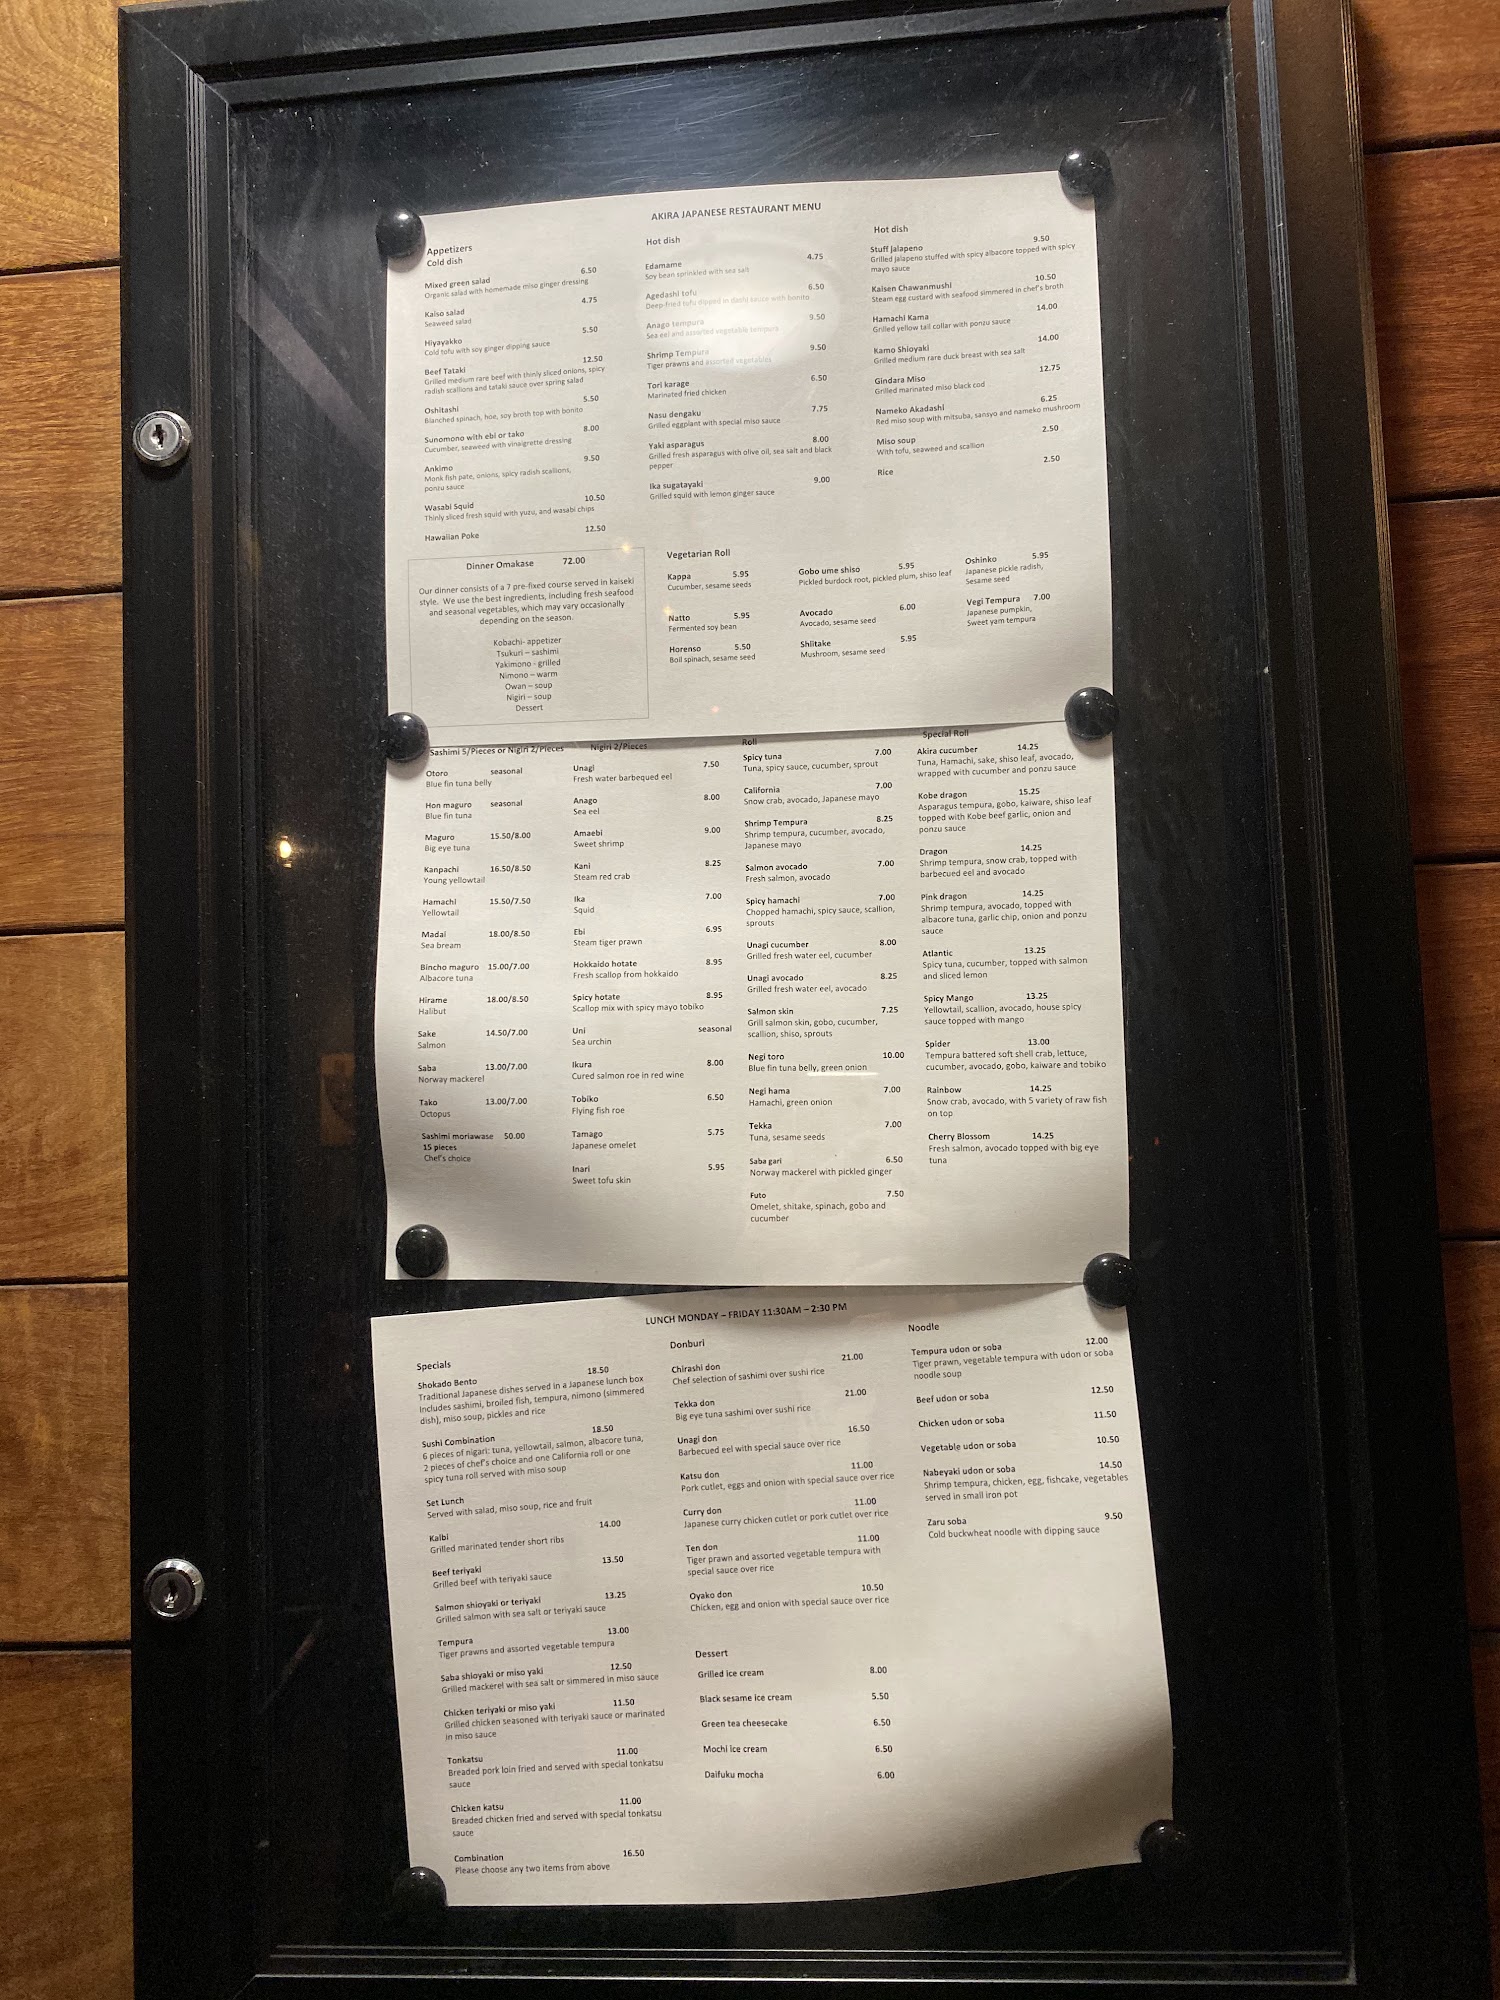 AKIRA JAPANESE RESTAURANT MENU
Appetizers
Cold dish
Mixed green salad 6.50
Organic salad with homemade miso ginger dressing
Kaiso salad 4.75
Seaweed salad
Hiyayakko 5.50
Cold tofu with soy ginger dipping sauce
Beef Tataki 12.50
Grilled medium rare beef with thinly sliced onions, spicy
radish scallions and tataki sauce over spring salad
Oshitashi 5.50
Blanched spinach, hoe, soy broth top with bonito
Sunomono with ebi or tako 8.00
Cucumber, seaweed with vinaigrette dressing
Ankimo 9.50
Monk fish pate, onions, spicy radish scallions,
ponzu sauce
Wasabi Squid 10.50
Thinly sliced fresh squid with yuzu, and wasabi chips
Hawaiian Poke 12.50
Hot dish
Edamame 4.75
Soy bean sprinkled with sea salt
Agedashi tofu 6.50
Deep fried tofu dipped in dashi sauce with bonito
Anago tempura 9.50
Sea eel and assorted vegetable tempura
Shrimp Tempura 9.50
Tiger prawns and assorted vegetables
Tori karage 6.50
Marinated fried chicken
Nasu dengaku 7.75
Grilled eggplant with special miso sauce
Yaki asparagus 8.00
Grilled fresh asparagus with olive oil, sea salt and black
pepper
Ika sugatayaki 9.00
Grilled squid with lemon ginger sauce
Hot dish
Stuff jalapeno 9.50
Grilled jalapeno stuffed with spicy albacore topped with spicy
mayo sauce
Kaisen Chawanmushi 10.50
Steam egg custard with seafood simmered in chef's broth
Hamachi Kama 14.00
Grilled yellow tail collar with ponzu sauce
Kamo Shioyaki 14.00
Grilled medium rare duck breast with sea salt
Gindara Miso 12.75
Grilled marinated miso black cod
Nameko Akadashi 6.25
Red miso soup with mitsuba, sansyo and nameko mushroom
Miso soup 2.50
With tofu, seaweed and scallion
Rice 2.50
Dinner Omakase 72.00
Our dinner consists of a 7 pre-fixed course served in kaiseki
style. We use the best ingredients, including fresh seafood
and seasonal vegetables, which may vary occasionally
depending on the season.
Kobachi- appetizer
Tsukuri – sashimi
Yakimono - grilled
Nimono – warm
Owan – soup
Nigiri – soup
Dessert
Vegetarian Roll
Kappa 5.95
Cucumber, sesame seeds
Natto 5.95
Fermented soy bean
Horenso 5.50
Boil spinach, sesame seed
Gobo ume shiso 5.95
Pickled burdock root, pickled plum, shiso leaf
Avocado 6.00
Avocado, sesame seed
Shiitake 5.95
Mushroom, sesame seed
Oshinko 5.95
Japanese pickle radish,
Sesame seed
Vegi Tempura 7.00
Japanese pumpkin,
Sweet yam tempura
Sashimi 5/Pieces or Nigiri 2/Pieces
Otoro seasonal
Blue fin tuna belly
Hon maguro seasonal
Blue fin tuna
Maguro 15.50/8.00
Big eye tuna
Kanpachi 16.50/8.50
Young yellowtail
Hamachi 15.50/7.50
Yellowtail
Madai 18.00/8.50
Sea bream
Bincho maguro 15.00/7.00
Albacore tuna
Hirame 18.00/8.50
Halibut
Sake 14.50/7.00
Salmon
Saba 13.00/7.00
Norway mackerel
Tako 13.00/7.00
Octopus
Sashimi moriawase 50.00
15 pieces
Chef's choice
Nigiri 2/Pieces
Unagi 7.50
Fresh water barbequed eel
Anago 8.00
Sea eel
Amaebi 9.00
Sweet shrimp
Kani 8.25
Steam red crab
Ika 7.00
Squid
Ebi 6.95
Steam tiger prawn
Hokkaido hotate 8.95
Fresh scallop from hokkaido
Spicy hotate 8.95
Scallop mix with spicy mayo tobiko
Uni seasonal
Sea urchin
Ikura 8.00
Cured salmon roe in red wine
Tobiko 6.50
Flying fish roe
Tamago 5.75
Japanese omelet
Inari 5.95
Sweet tofu skin
Roll
Spicy tuna 7.00
Tuna, spicy sauce, cucumber, sprout
California 7.00
Snow crab, avocado, Japanese mayo
Shrimp Tempura 8.25
Shrimp tempura, cucumber, avocado,
Japanese mayo
Salmon avocado 7.00
Fresh salmon, avocado
Spicy hamachi 7.00
Chopped hamachi, spicy sauce, scallion,
sprouts
Unagi cucumber 8.00
Grilled fresh water eel, cucumber
Unagi avocado 8.25
Grilled fresh water eel, avocado
Salmon skin 7.25
Grill salmon skin, gobo, cucumber,
scallion, shiso, sprouts
Negi toro 10.00
Blue fin tuna belly, green onion
Negi hama 7.00
Hamachi, green onion
Tekka 7.00
Tuna, sesame seeds
Saba gari 6.50
Norway mackerel with pickled ginger
Futo 7.50
Omelet, shitake, spinach, gobo and
cucumber
Special Roll
Akira cucumber 14.25
Tuna, Hamachi, sake, shiso leaf, avocado,
wrapped with cucumber and ponzu sauce
Kobe dragon 15.25
Asparagus tempura, gobo, kaiware, shiso leaf
topped with Kobe beef garlic, onion and
ponzu sauce
Dragon 14.25
Shrimp tempura, snow crab, topped with
barbecued eel and avocado
Pink dragon 14.25
Shrimp tempura, avocado, topped with
albacore tuna, garlic chip, onion and ponzu
sauce
Atlantic 13.25
Spicy tuna, cucumber, topped with salmon
and sliced lemon
Spicy Mango 13.25
Yellowtail, scallion, avocado, house spicy
sauce topped with mango
Spider 13.00
Tempura battered soft shell crab, lettuce,
cucumber, avocado, gobo, kaiware and tobiko
Rainbow 14.25
Snow crab, avocado, with 5 variety of raw fish
on top
Cherry Blossom 14.25
Fresh salmon, avocado topped with big eye
tuna
LUNCH MONDAY – FRIDAY 11:30AM – 2:30 PM
Specials
Shokado Bento 18.50
Traditional Japanese dishes served in a Japanese lunch box
Includes sashimi, broiled fish, tempura, nimono (simmered
dish), miso soup, pickles and rice
Sushi Combination 18.50
6 pieces of nigari: tuna, yellowtail, salmon, albacore tuna,
2 pieces of chef's choice and one California roll or one
spicy tuna roll served with miso soup
Set Lunch
Served with salad, miso soup, rice and fruit
Kalbi 14.00
Grilled marinated tender short ribs
Beef teriyaki 13.50
Grilled beef with teriyaki sauce
Salmon shioyaki or teriyaki 13.25
Grilled salmon with sea salt or teriyaki sauce
Tempura 13.00
Tiger prawns and assorted vegetable tempura
Saba shioyaki or miso yaki 12.50
Grilled mackerel with sea salt or simmered in miso sauce
Chicken teriyaki or miso yaki 11.50
Grilled chicken seasoned with teriyaki sauce or marinated
in miso sauce
Tonkatsu 11.00
Breaded pork loin fried and served with special tonkatsu
sauce
Chicken katsu 11.00
Breaded chicken fried and served with special tonkatsu
sauce
Combination 16.50
Please choose any two items from above
Donburi
Chirashi don 21.00
Chef selection of sashimi over sushi rice
Tekka don 21.00
Big eye tuna sashimi over sushi rice
Unagi don 16.50
Barbecued eel with special sauce over rice
Katsu don 11.00
Pork cutlet, eggs and onion with special sauce over rice
Curry don 11.00
Japanese curry chicken cutlet or pork cutlet over rice
Ten don 11.00
Tiger prawn and assorted vegetable tempura with
special sauce over rice
Oyako don 10.50
Chicken, egg and onion with special sauce over rice
Dessert
Grilled ice cream 8.00
Black sesame ice cream 5.50
Green tea cheesecake 6.50
Mochi ice cream 6.50
Daifuku mocha 6.00
Noodle
Tempura udon or soba 12.00
Tiger prawn, vegetable tempura with udon or soba
noodle soup
Beef udon or soba 12.50
Chicken udon or soba 11.50
Vegetable udon or soba 10.50
Nabeyaki udon or soba 14.50
Shrimp tempura, chicken, egg, fishcake, vegetables
served in small iron pot
Zaru soba 9.50
Cold buckwheat noodle with dipping sauce